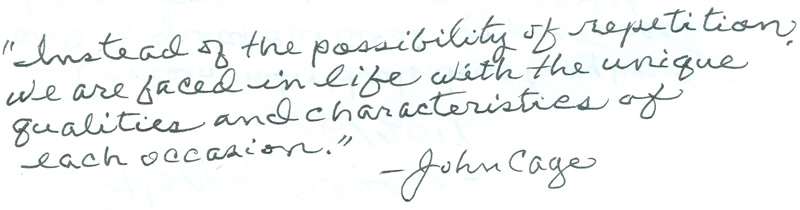 "Instead of the possibility of repetition,
we are faced in life with the unique
qualities and characteristics of
each occasion."
—John Cage